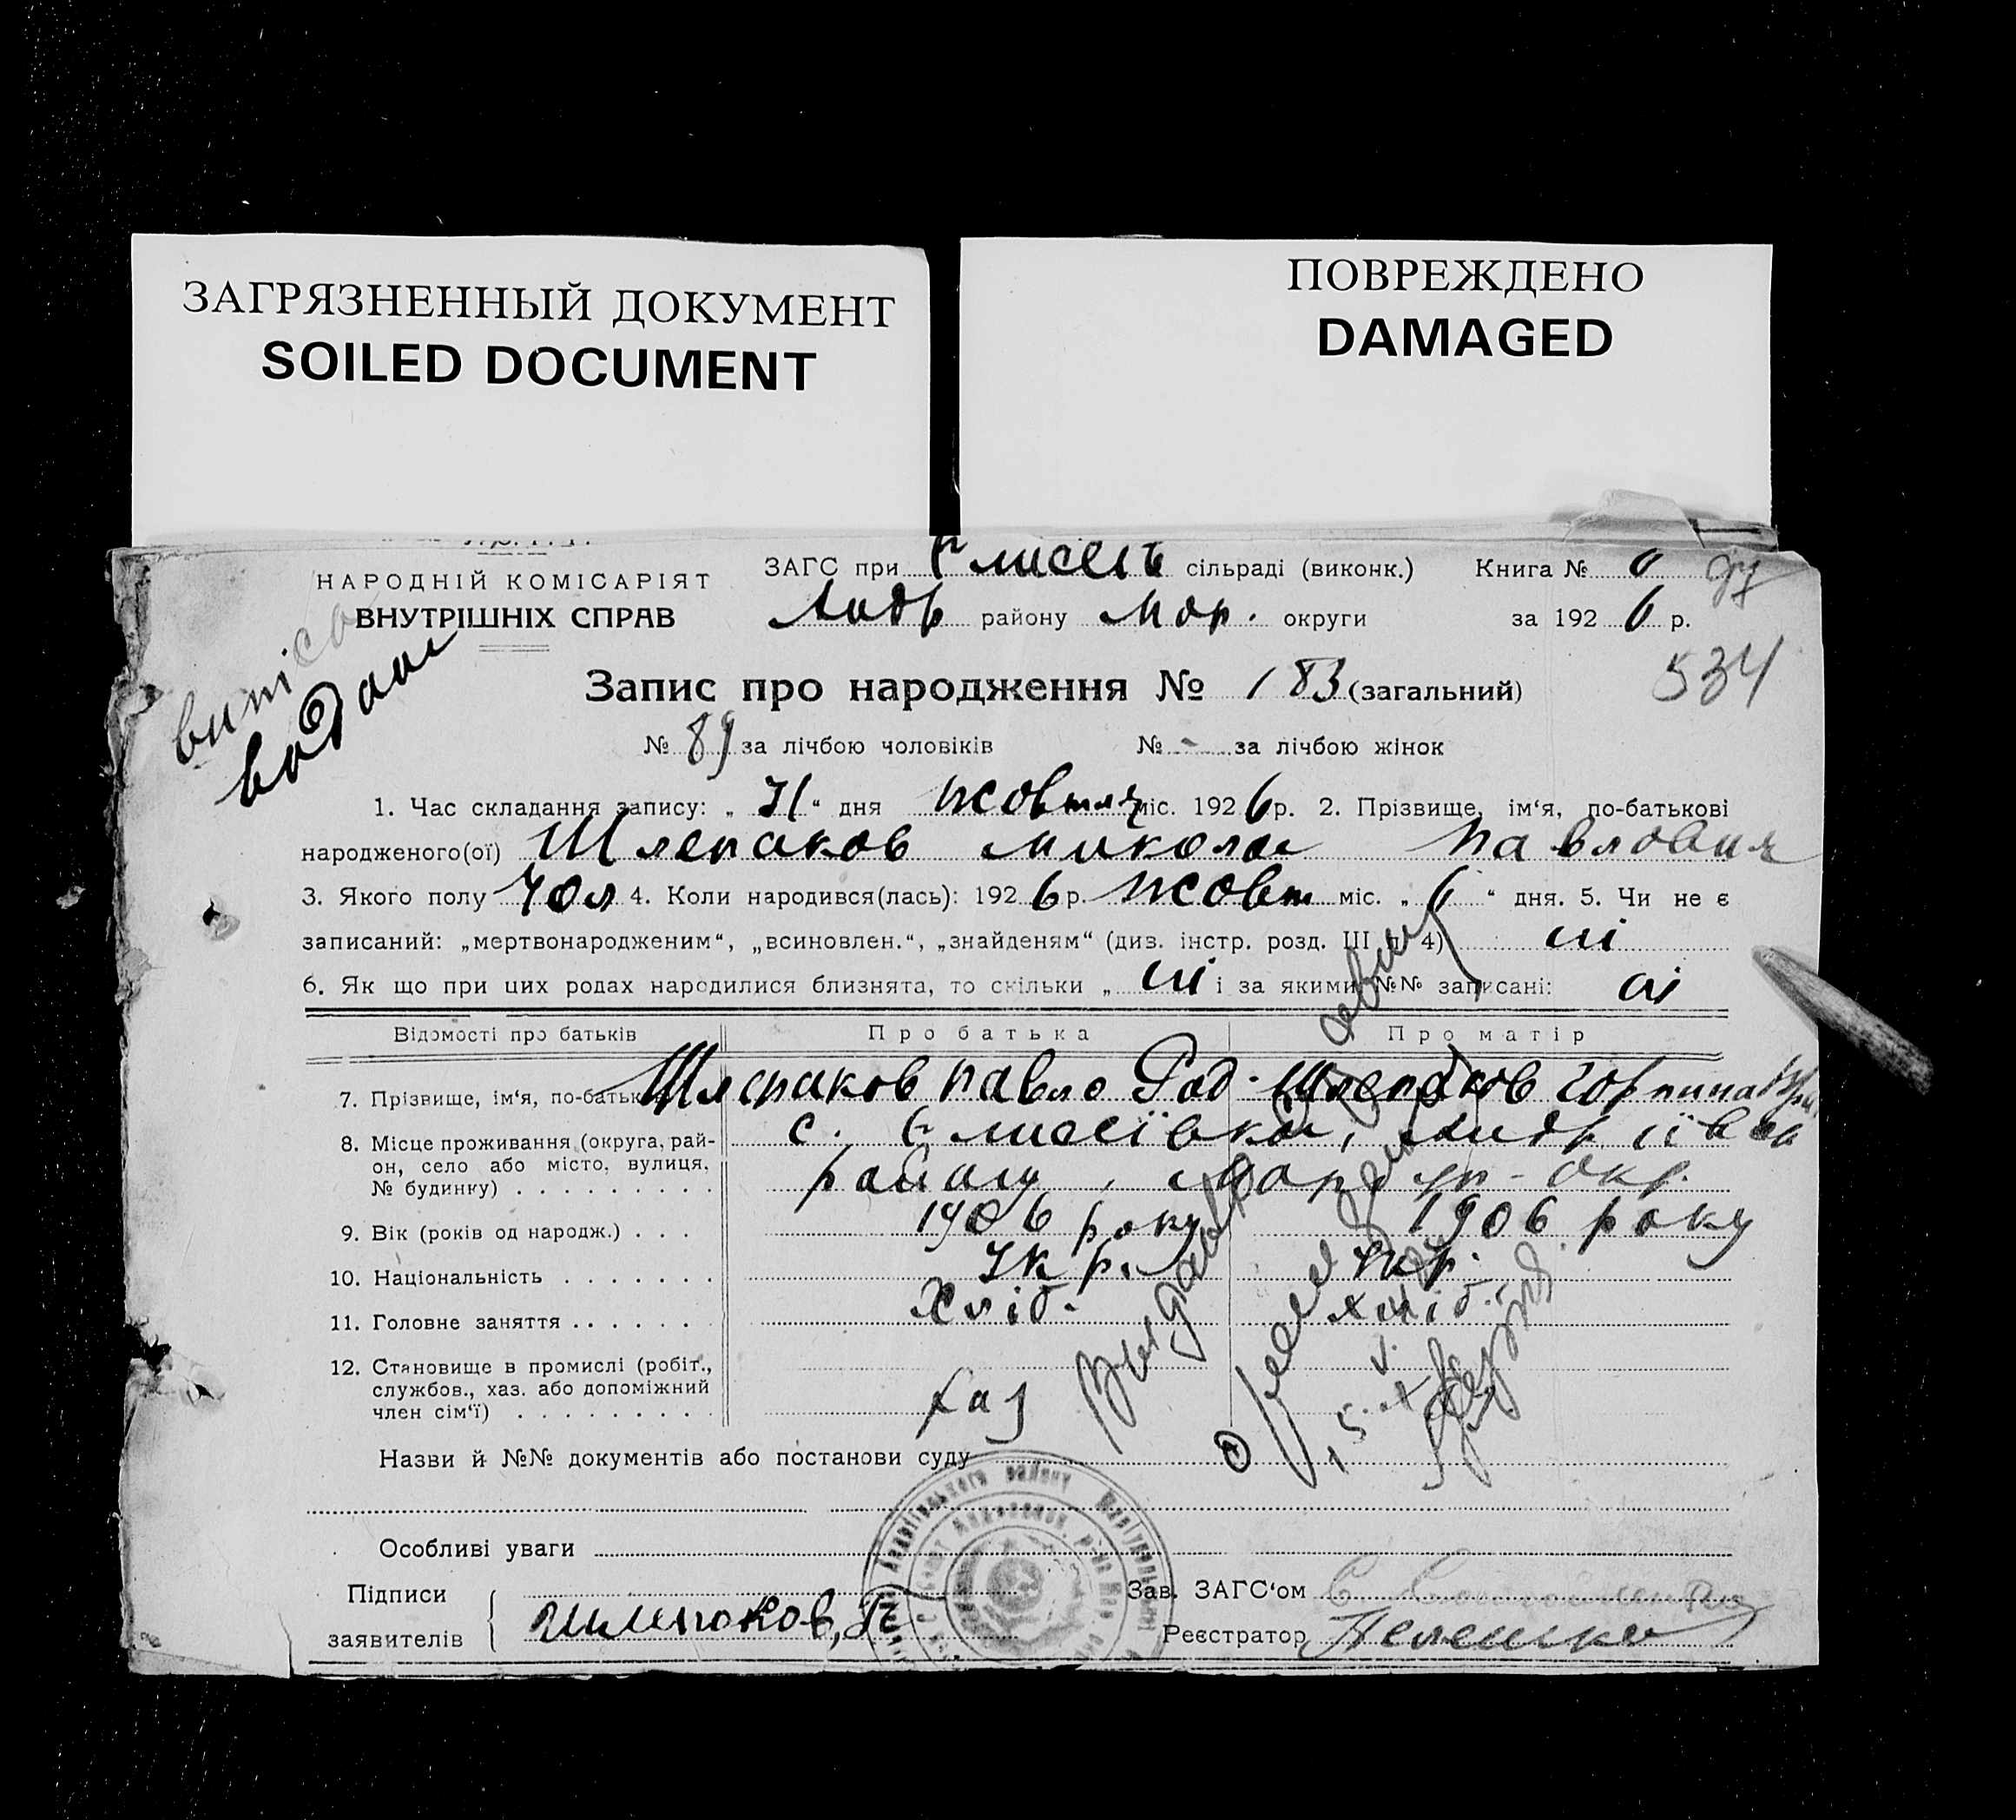 ЗАГРЯЗНЕННЫЙ ДОКУМЕНТ
SOILED DOCUMENT
ПОВРЕЖДЕНО
DAMAGED
НАРОДНІЙ КОМІСАРІЯТ
ВНУТРІШНІХ СПРАВ
ЗАГС при Єлисеїв сільраді (виконк.) Книга №
Андр району Мар. округи за 1926 р.
534
Запис про народження № 183 (загальний)
№ 89 за лічбою чоловіків № - за лічбою жінок
1. Час складання запису: „ “ дня жовтня міс. 1926 р. 2. Прізвище, ім‘я, по-батькові
народженого(ої) Шлепаков Микола Павлович
3. Якого полу Чол 4. Коли народився(лась): 1926 р. жовт міс. „6“ дня. 5. Чи не є
записаний: „мертвонародженим“, „всиновлен.“, „знайденям“ (див. інстр. розд. III п. 4) ні
6. Як що при цих родах народилися близнята, то скільки „ ні і за якими №№ записані: ні
Відомості про батьків Про батька Про матір
7. Прізвище, ім‘я, по-батьк Шлепаков Павло Род. Шлепаков Горпина
8. Місце проживання (округа, рай-
он, село або місто, вулиця,
№ будинку)
с. Єлисеївка, Андріївка
району, Маріуп-окр.
9. Вік (років од народж.) 1906 року 1906 року
10. Національність Укр. Укр.
11. Головне заняття Хліб. хліб.
12. Становище в промислі (робіт.,
службов., хаз. або допоміжний
член сім‘ї)
хаз
Назви й №№ документів або постанови суду
Особливі уваги
Підписи
заявителів
Шлепоков,
Зав. ЗАГС‘ом
Реєстратор